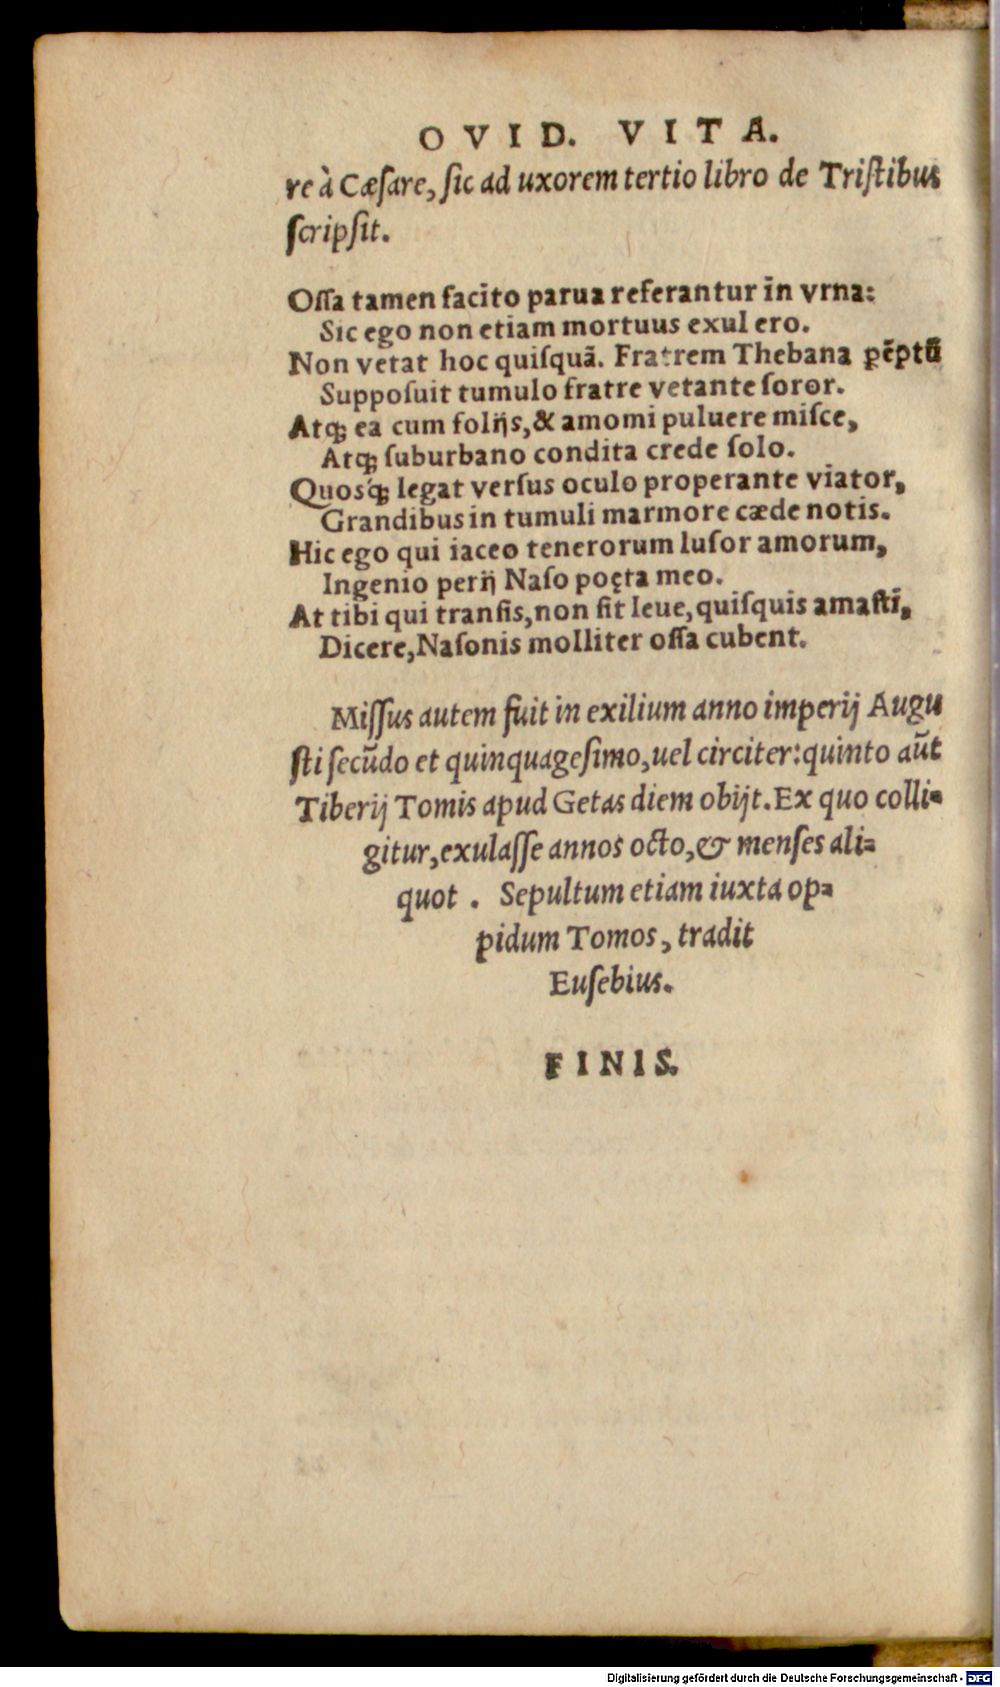 OVID. VITA.
re à Cæſare, ſic ad uxorem tertio libro de Triſtibus
ſcripſit.
Oſſa tamen facito parua referantur in vrna:
Sic ego non etiam mortuus exul ero.
Non vetat hoc quiſquã. Fratrem Thebana pẽptũ
Suppoſuit tumulo fratre vetante ſoror.
Atq; ea cum folijs, & amomi puluere miſce,
Atq; ſuburbano condita crede ſolo.
Quosq́; legat verſus oculo properante viator,
Grandibus in tumuli marmore cæde notis.
Hic ego qui iaceo tenerorum luſor amorum,
Ingenio perij Naſo poęta meo.
At tibi qui tranſis, non ſit leue, quiſquis amaſti,
Dicere, Naſonis molliter oſſa cubent.
Miſſus autem fuit in exilium anno imperij Augu
ſti ſecũdo et quinquageſimo, uel circiter: quinto aũt
Tiberij Tomis apud Getas diem obijt. Ex quo colli-
gitur, exulaſſe annos octo, & menſes ali-
quot. Sepultum etiam iuxta op-
pidum Tomos, tradit
Euſebius.
FINIS.
Digitalisierung gefördert durch die Deutsche Forschungsgemeinschaft - DFG